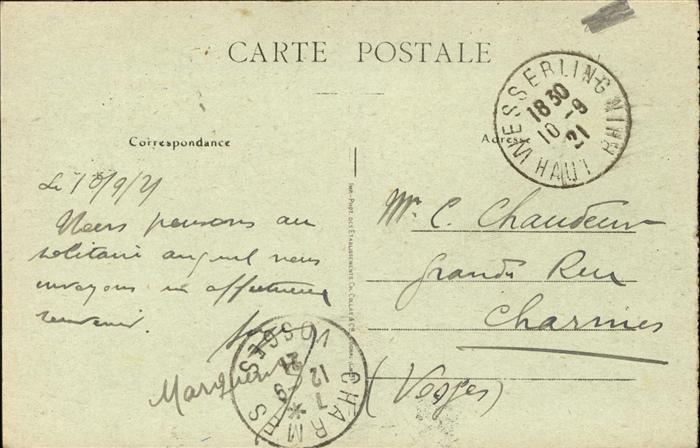 CARTE POSTALE
Correspondance
Adresse
WESSERLING HAUT RHIN
18 30
10 -9
21
Le 10/9/21
Nous pensons au
solitaire auquel nous
envoyons un affectueux
souvenir.
Marguerite
Mr C. Chaudeur
Grande Rue
Charmes
(Vosges)
CHARMES VOSGES
7
12 -9
21
IMP. PHOT. DES ETABLISSEMENTS CH. COLLAS & CIE